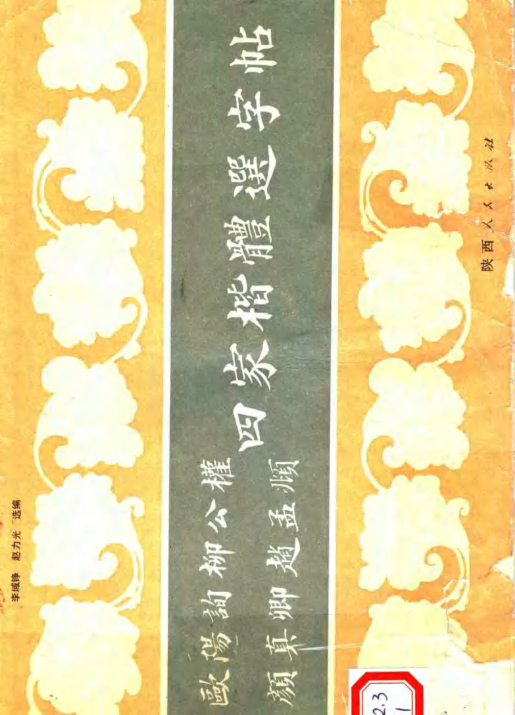 李域铮 赵力光 选编
歐陽詢 柳公權
顏真卿 趙孟頫
四家楷體選字帖
陕西人民出版社
2.3
1